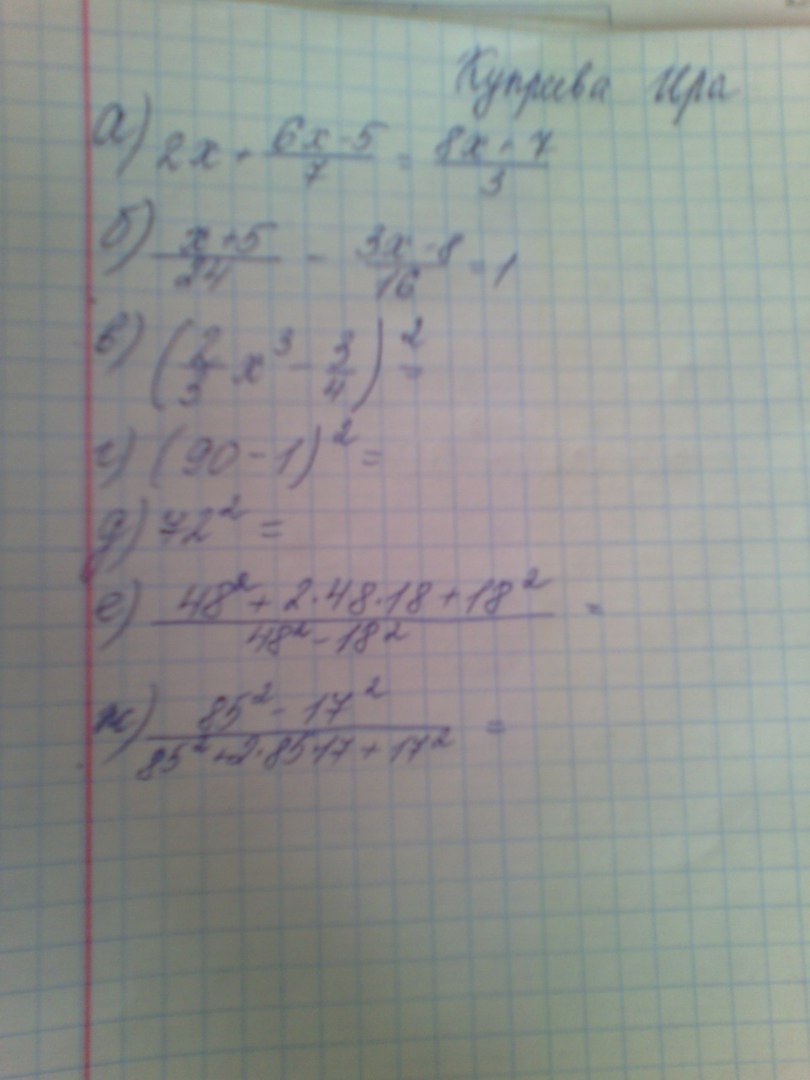 Ира
а) 2x + (6x-5)/7 = (8x+7)/3
б) (x+5)/24 - (3x-8)/16 = 1
в) (2/3 x³ - 3/4)² =
г) (90-1)² =
д) 72² =
е) (48² + 2·48·18 + 18²)/(48² - 18²) =
ж) (85² - 17²)/(85² + 2·85·17 + 17²) =